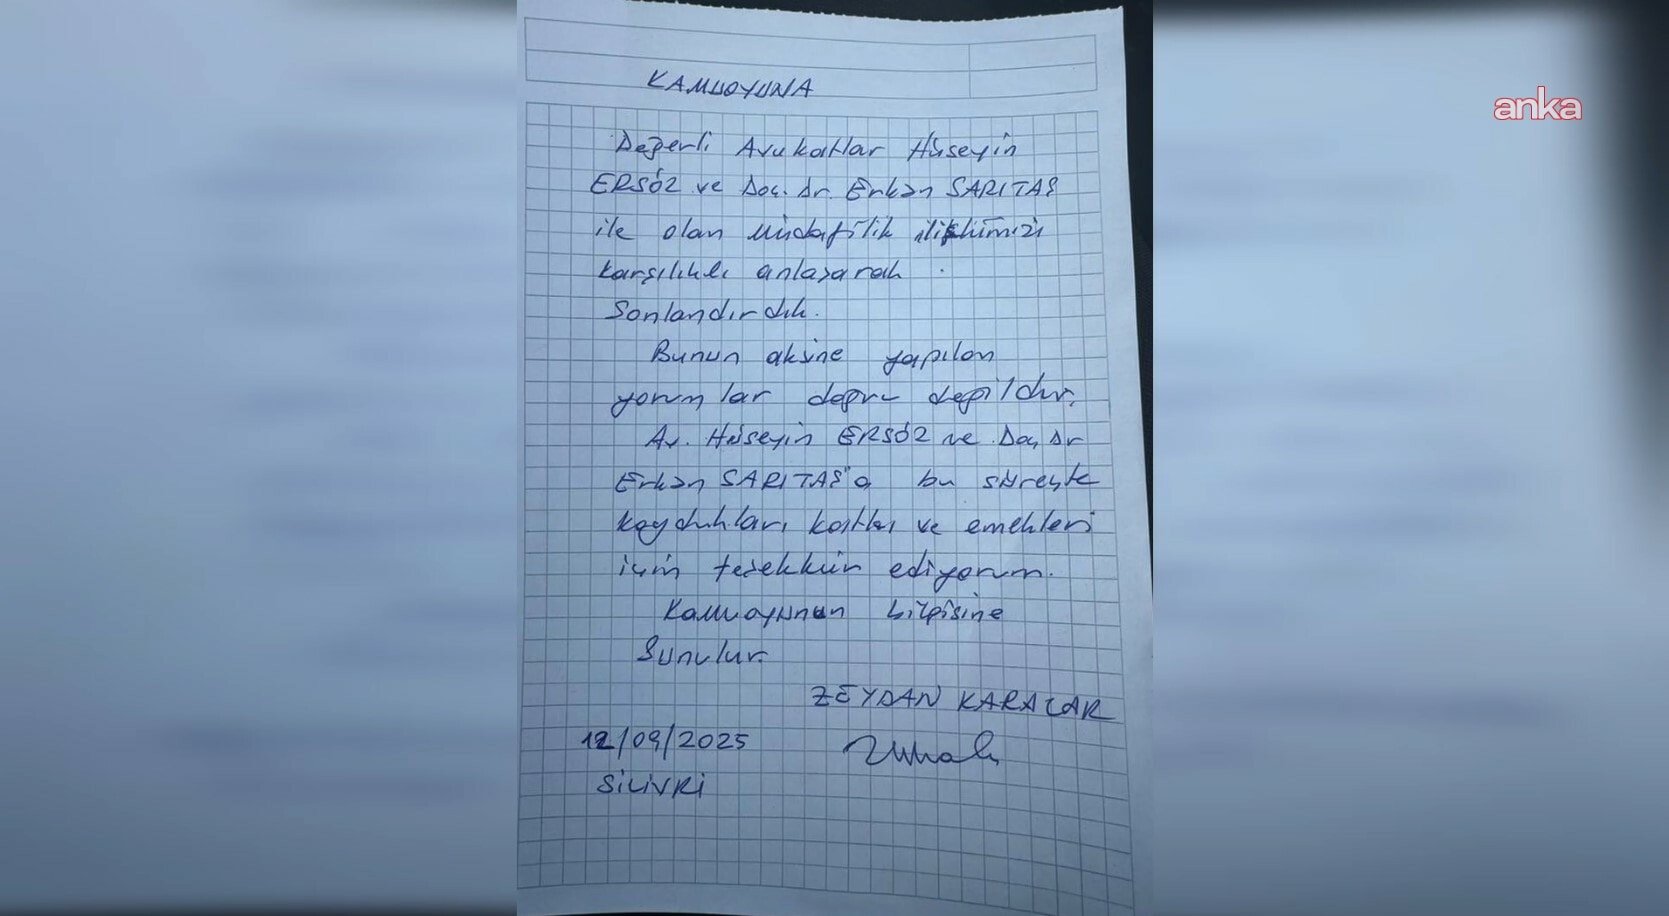 KAMUOYUNA
anka
Değerli Avukatlar Hüseyin
ERSÖZ ve Doç. Dr. Erkan SARITAŞ
ile olan müdafilik ilişkimizi
karşılıklı anlaşarak
Sonlandırdık.
Bunun aksine yapılan
yorumlar doğru değildir.
Av. Hüseyin ERSÖZ ve Doç Dr
Erkan SARITAŞ'a bu süreçte
koydukları katkı ve emekleri
için teşekkür ediyorum.
Kamuoyunun bilgisine
Sunulur.
ZEYDAN KARALAR
12/09/2025
SİLİVRİ